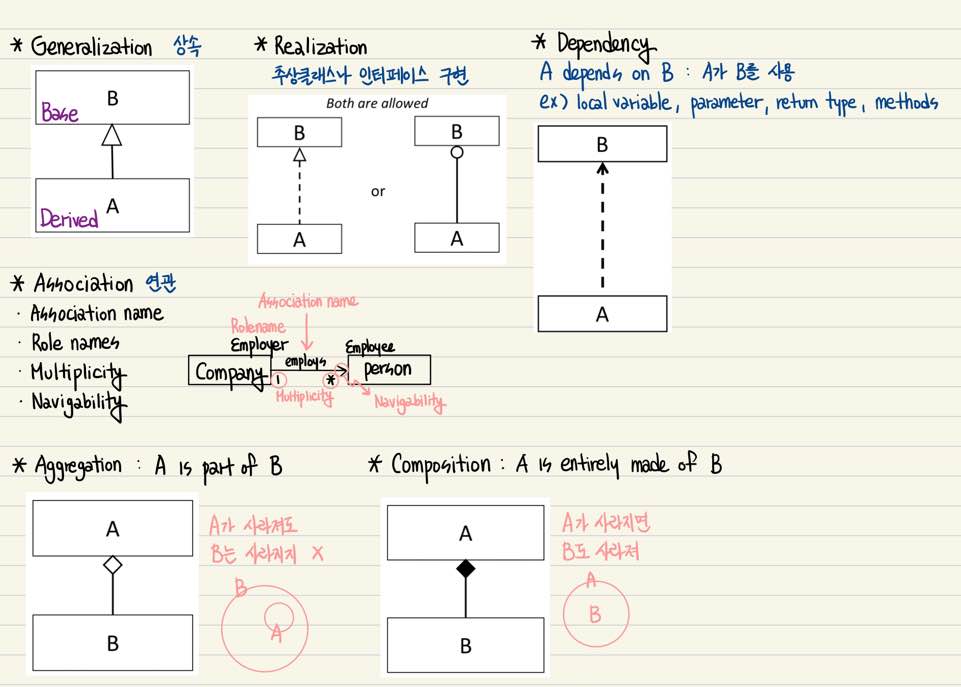 * Generalization 상속
B
Base
A
Derived
* Realization
추상클래스나 인터페이스 구현
Both are allowed
B
B
or
A
A
* Dependency
A depends on B : A가 B를 사용
ex) local variable, parameter, return type, methods
B
A
* Association 연관
· Association name
· Role names
· Multiplicity
· Navigability
Association name
Rolename
Employer
Employee
Company
employs
person
1
*
Multiplicity
Navigability
* Aggregation : A is part of B
A
B
A가 사라져도
B는 사라지지 X
B
A
* Composition : A is entirely made of B
A
B
A가 사라지면
B도 사라져
A
B